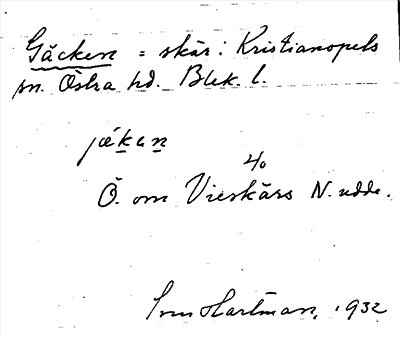 Gäcken = skär i Kristianopels
sn. Östra hd. Blek. l.
jäkan
4/0
Ö. om Vieskärs N. udde.
Sven Hartman, 1932